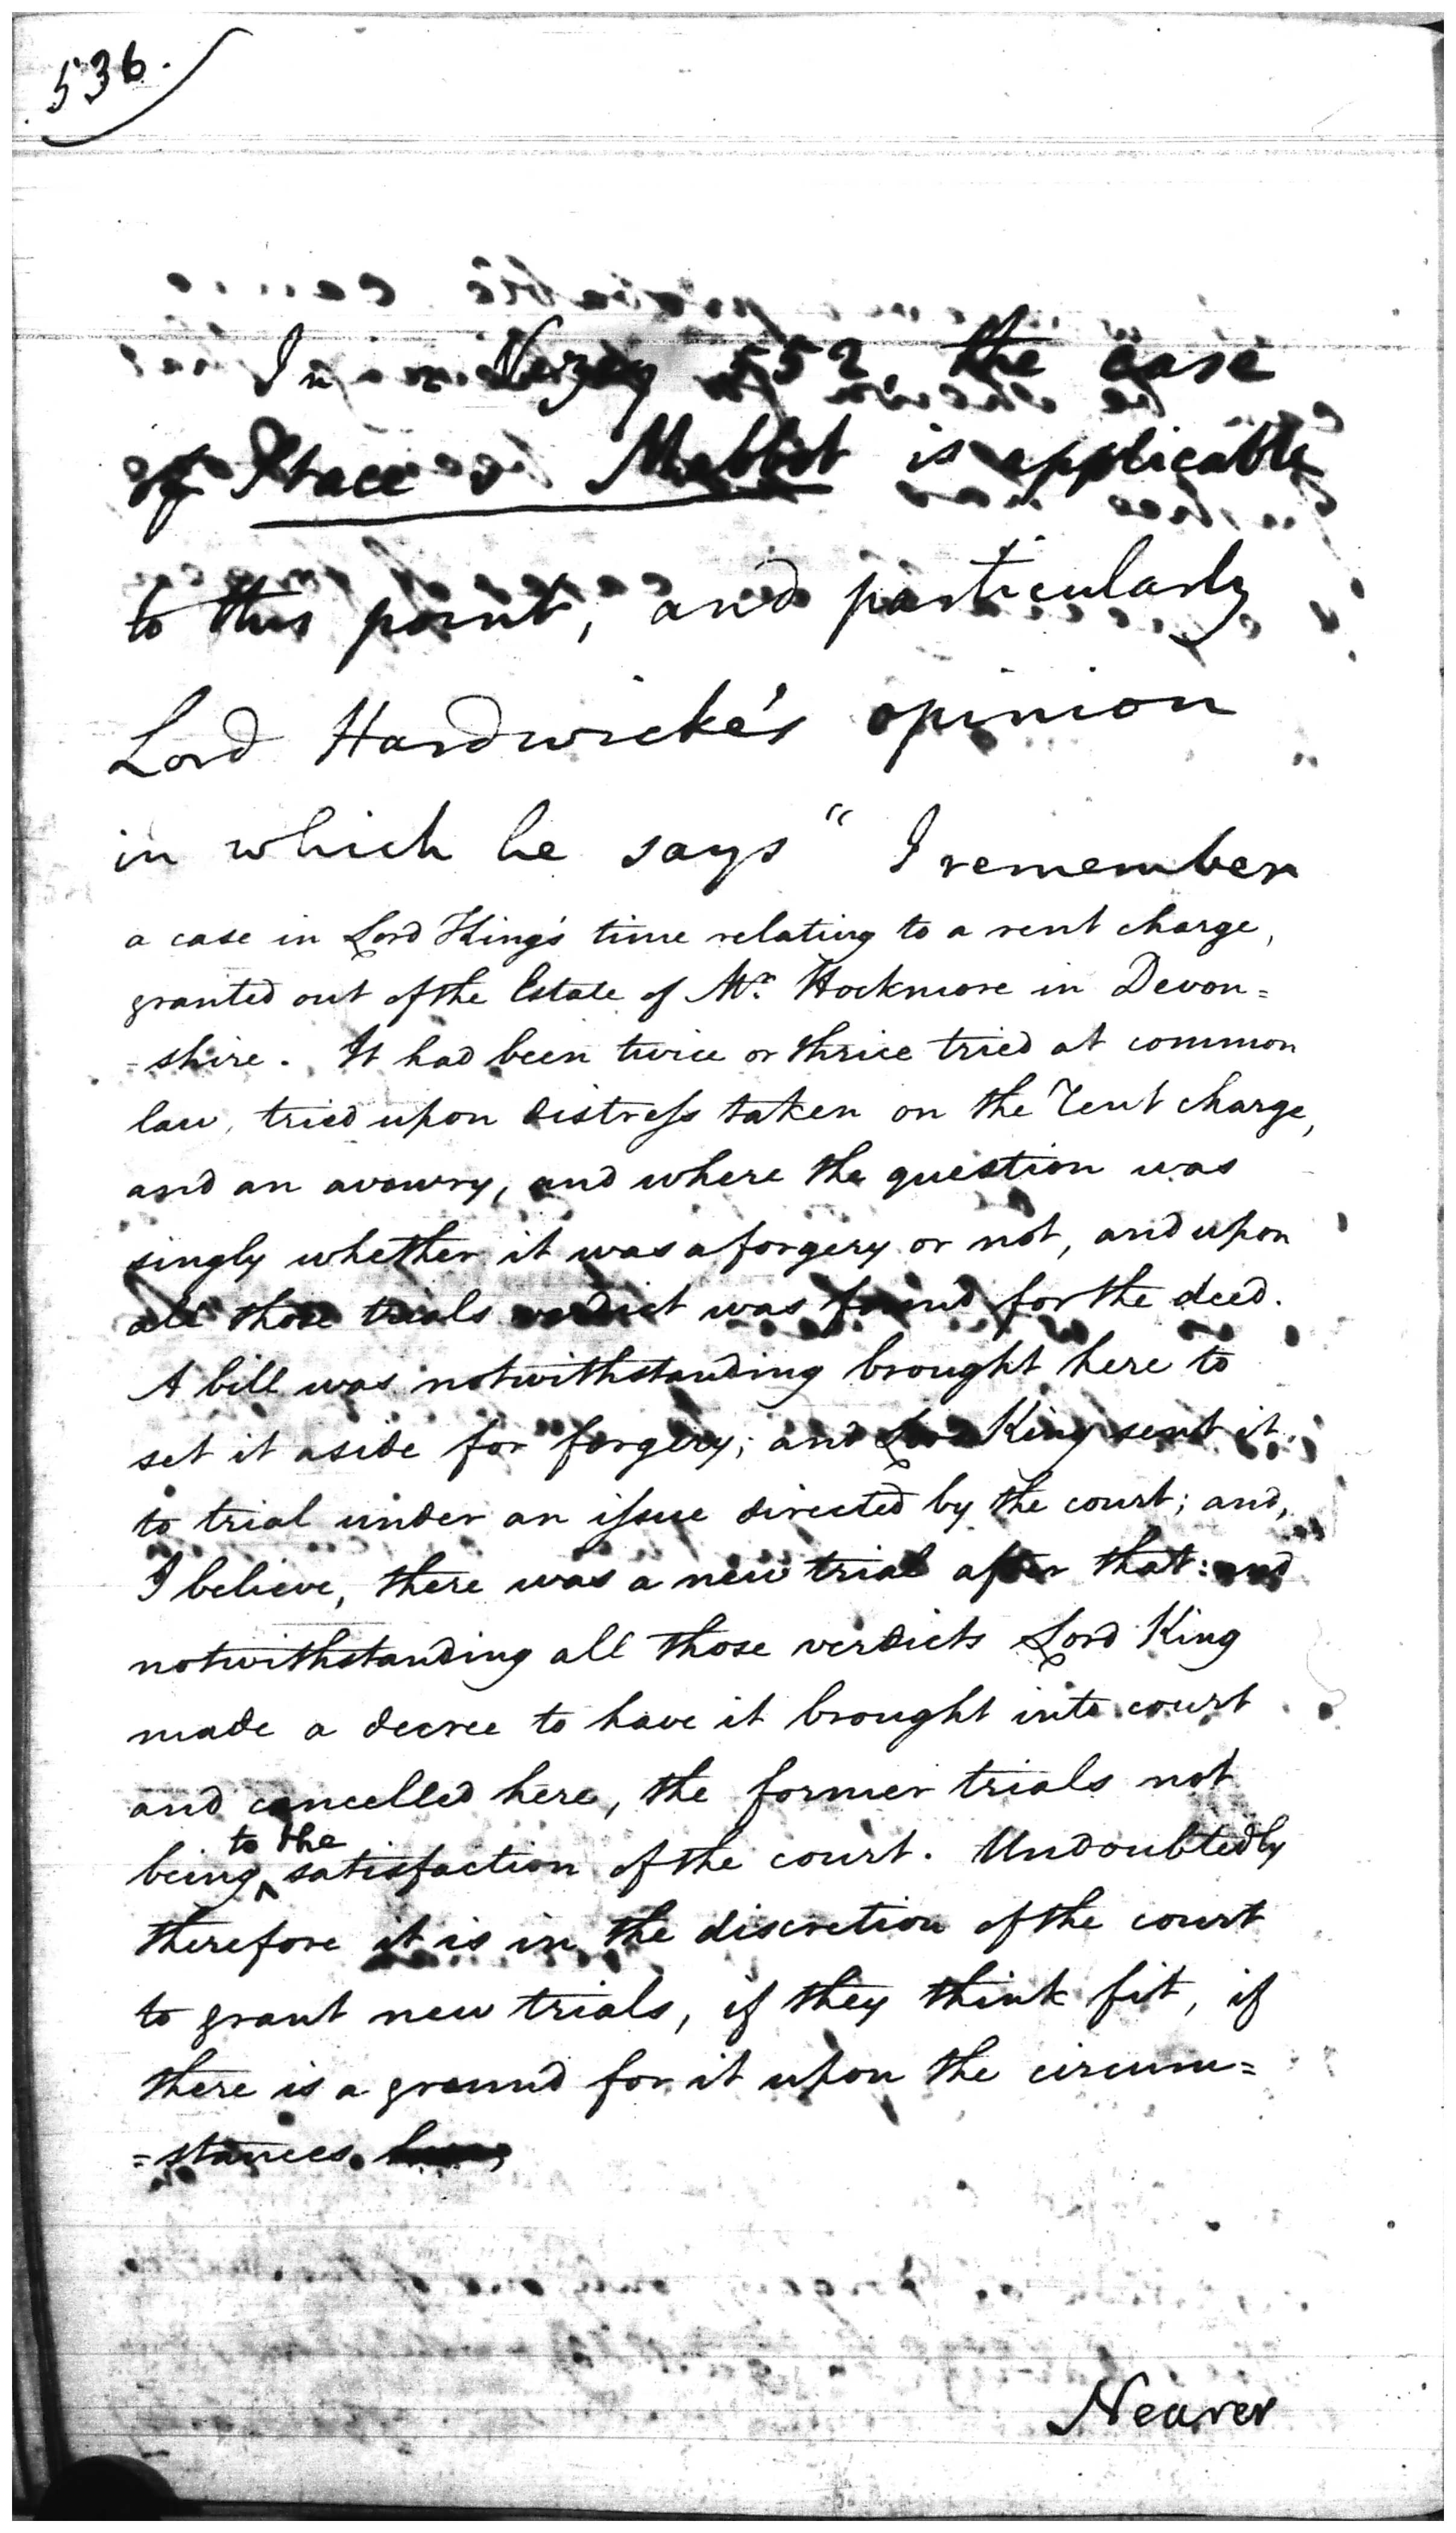 536.
In Vezey 552, the case
of Stace v Mabbot is applicable
to this point, and particularly
Lord Hardwicke's opinion
in which he says "I remember
a case in Lord King's time relating to a rent charge,
granted out of the Estate of Mr. Hockmore in Devon=
=shire. It had been twice or thrice tried at common
law, tried upon distress taken on the rent charge,
and an avowry, and where the question was
singly whether it was a forgery or not, and upon
all those trials verdict was found for the deed.
A bill was notwithstanding brought here to
set it aside for forgery; and Lord King sent it
to trial under an issue directed by the court; and,
I believe, there was a new trial after that: and
notwithstanding all those verdicts Lord King
made a decree to have it brought into court
and cancelled here, the former trials not
being to the satisfaction of the court. Undoubtedly
therefore it is in the discretion of the court
to grant new trials, if they think fit, if
there is a ground for it upon the circum=
=stances.
Nearer